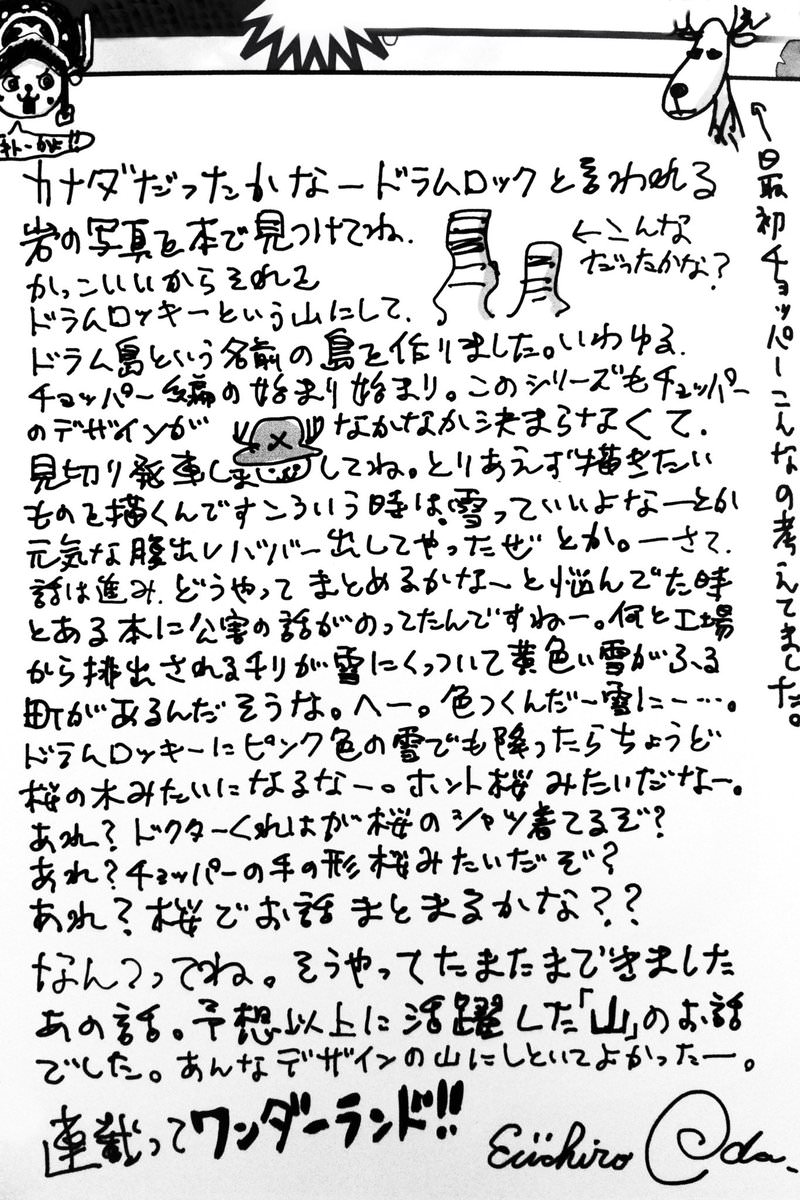 テキトーかよ!!
←最初チョッパーこんなの考えてました。
カナダだったかなードラムロックと言われる
岩の写真を本で見つけてね、
←こんな
だったかな?
かっこいいからそれを
ドラムロッキーという山にして、
ドラム島という名前の島を作りました。いわゆる、
チョッパー編の始まり始まり。このシリーズもチョッパー
のデザインが なかなか決まらなくて、
見切り発車しまして してね。とりあえず描きたい
ものを描くんですこういう時は、雪っていいよなーとか
元気な腹出しババー出してやったぜ とか。ーさて、
話は進み、どうやって まとめるかな〜と悩んでた時
とある本に公害の話がのってたんですねー。何と工場
から排出されるチリが雪にくっついて黄色い雪がふる
町があるんだそうな。へー。色つくんだー雪にー…。
ドラムロッキーにピンク色の雪でも降ったらちょうど
桜の木みたいになるなー。ホント桜みたいだなー。
あれ?ドクターくれはが桜のシャツ着てるぞ?
あれ?チョッパーの手の形桜みたいだぞ?
あれ?桜でお話まとまるかな??
なんつってね。そうやってたまたまできました
あの話。予想以上に活躍した「山」のお話
でした。あんなデザインの山にしといてよかったー。
連載ってワンダーランド!!
Eiichiro Oda